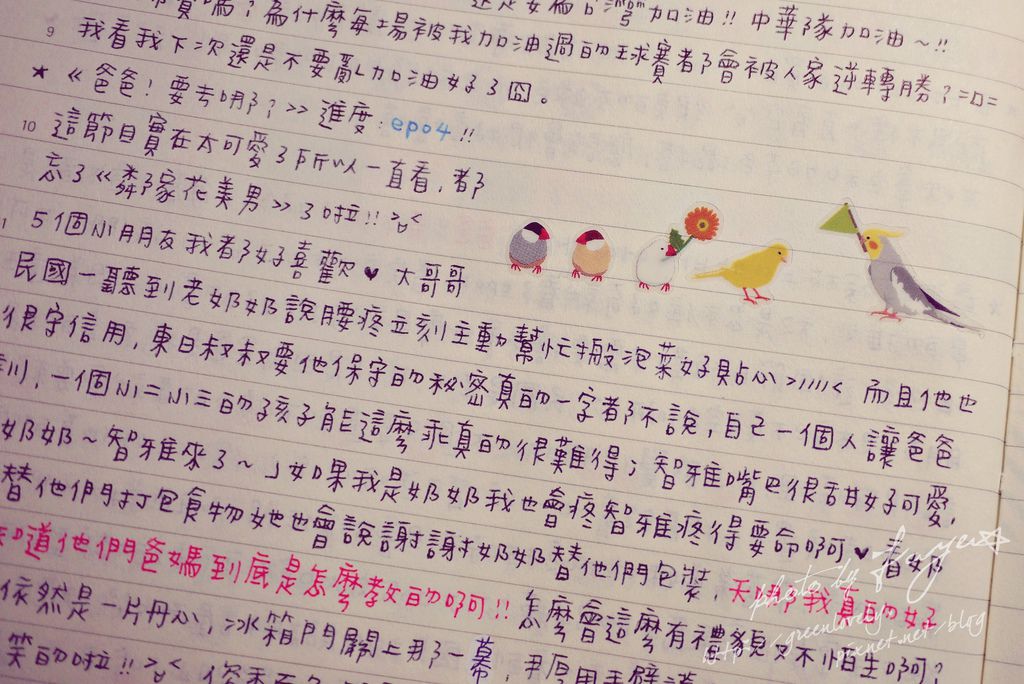 加油!! 中華隊加油~!!
為什麼每場被我加油過的球賽都會被人家逆轉勝?=口=
9 我看我下次還是不要亂加油好了囧。
★ 《爸爸!要去哪?》進度 ep04!!
10 這節目實在太可愛了所以一直看,都
忘了《鄰家花美男》了啦!! >"<
5個小朋友我都好喜歡♥ 大哥哥
民國一聽到老奶奶說腰疼立刻主動幫忙搬泡菜好貼心 >////< 而且他也
很守信用,東日叔叔要他保守的秘密真的一字都不說,自己一個人讓爸爸
一個小二小三的孩子能這麼乖真的很難得;智雅嘴巴很甜好可愛,
奶奶~智雅來了~」如果我是奶奶我也會疼智雅疼得要命啊♥ 看奶
替他們打包食物她也會說謝謝奶奶替他們包裝,天哪我真的好
知道他們爸媽到底是怎麼教的啊!! 怎麼會這麼有禮貌又不怕生啊?
依然是一片丹心,冰箱門關上那一幕,
笑的啦!! >"<
photo by
http://greenlovely
pixnet.net/blog